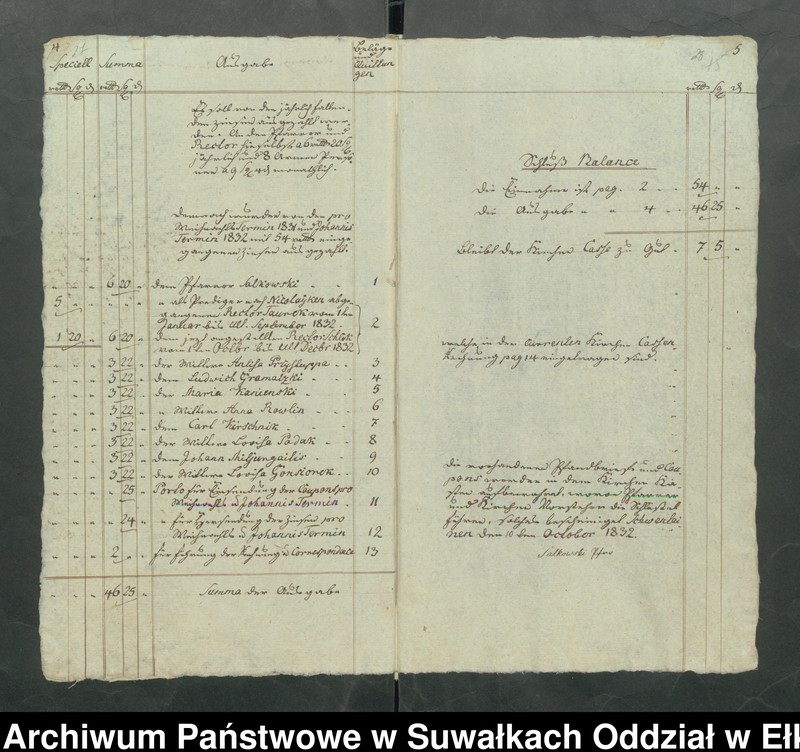 4
Speciell Summa Ausgabe Beläge und Quittungen
rtl sg d rtl sg d
Es soll von den jährlich fallen-
den Zinsen ausgezahlt wer-
den: An den Pfarrer und
Rector hieselbst a 6 rtl 20 sg
jährlich und 8 Armen Perso-
nen a 9 sg 4 d monathlich.
Demnach wurden von den pro
Weihnachts Termin 1831 und Johannis
Termin 1832 mit 54 rtl einge-
gangenen Zinsen ausgezahlt.
6 20 dem Pfarrer Salkowski 1
5 als Prediger nach Nicolayken abge-
gangenen Rector Taurek vom 1ten
Januar bis ult. September 1832.
1 20 6 20 dem jezt angestellten Rector 2
vom 1ten Octbr bis ult Decbr 1832
3 22 der Wittwe 3
3 22 dem Ludwich Gramatzki 4
3 22 der Maria Kanienski 5
3 22 Wittwe Anna Rowlin 6
3 22 dem Carl Kirschnik 7
3 22 der Wittwe Lovisa Padak 8
3 22 dem Johann 9
3 22 der Wittwe Lovisa Gonsiorek 10
25 Porto für Einsendung der Coupons pro
Weihnachts u Johannis Termin 11
24 für Übersendung der Zinsen pro
Weihnachts u Johannis Termin 12
2 für Führung der Rechnung u Correspondance 13
46 25 Summa der Ausgabe
5
rtl sg d
Schluß Balance
Die Einnahme ist pag. 2 54
die Ausgabe 4 46 25
Bleibt der Kirchen Casse zu Gut 7 5
welche in den Kirchen Cassen
Rechnung pag 14 eingetragen sind.
Die vorhandenen Pfandbriefe und Cou-
pons werden in dem Kirchen Ka-
sten aufbewahrt, wovon Pfarrer
und Kirchen Vorsteher die Schlüssel
führen, solches bescheiniget Schwentai-
nen den 10ten October 1832.
Salkowski Pfrr
Archiwum Państwowe w Suwałkach Oddział w Eł